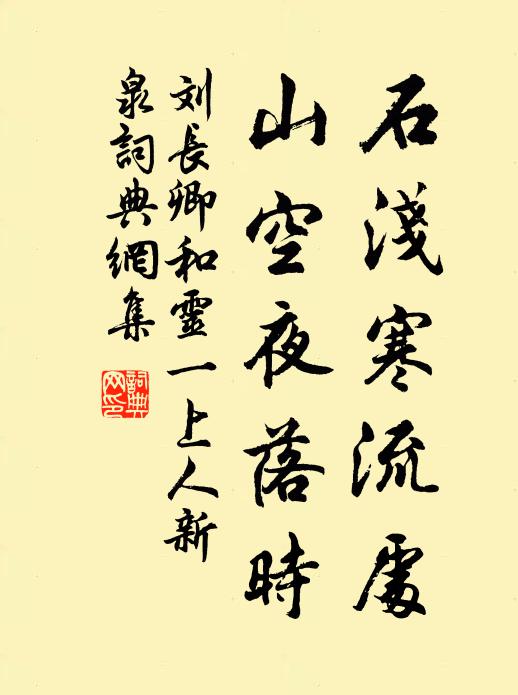 石淺寒流處
山空夜落時
刘長卿和靈一上人新
泉詞典網集
詞典
网印